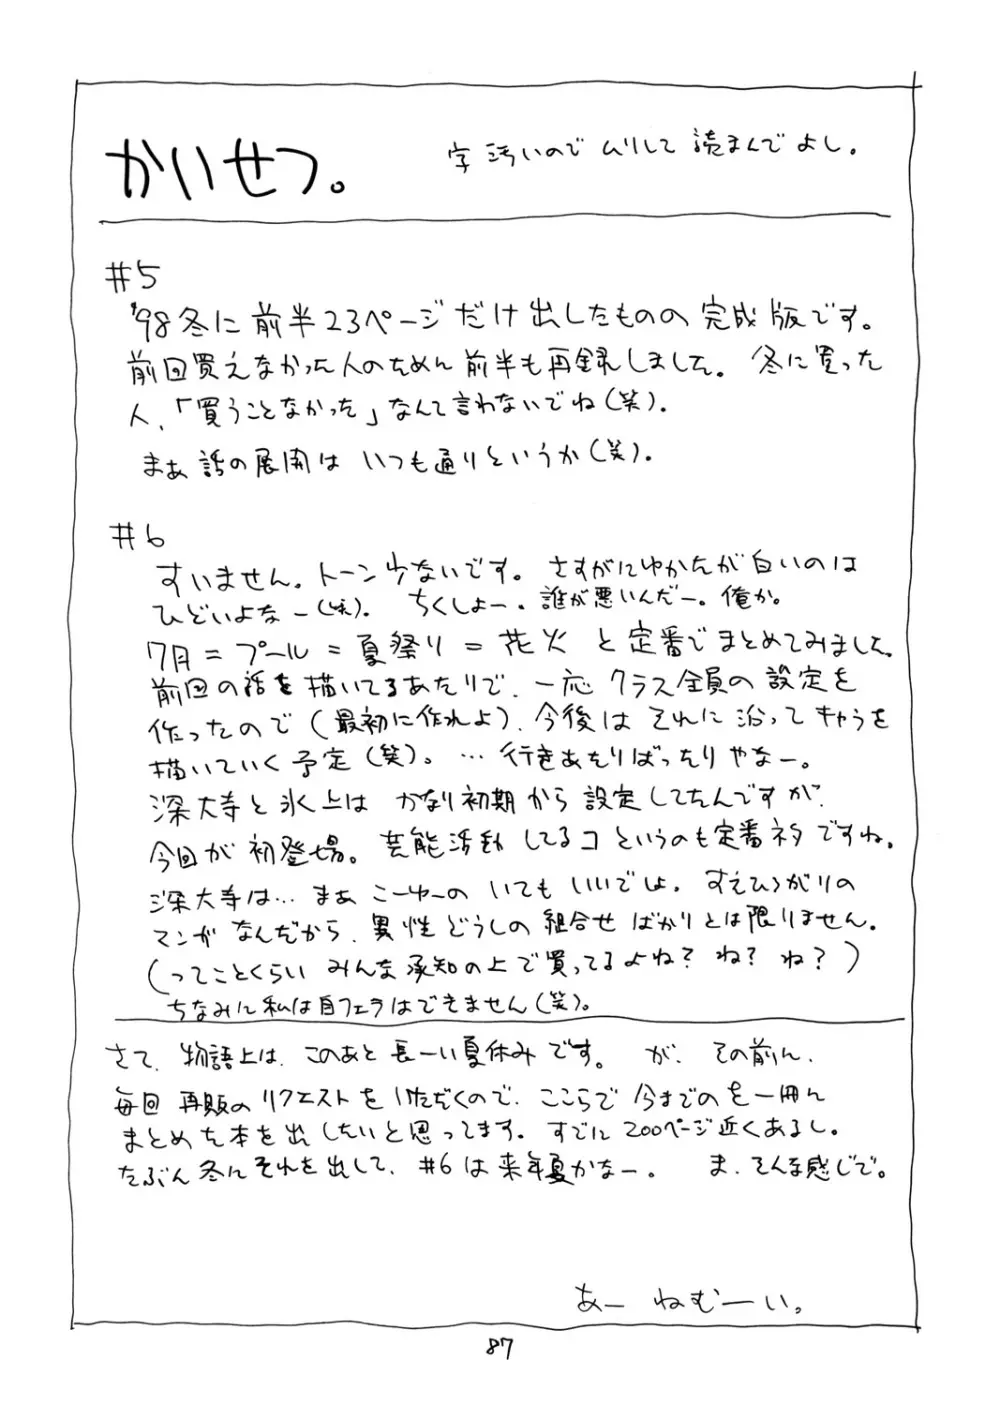 かいせつ。
字汚いのでムリして読まんでよし。
#5
'98冬に前半23ページだけ出したものの完成版です。
前回買えなかった人のために前半も再録しました。冬に買った
人、「買うことなかった」なんて言わないでね(笑)。
まぁ話の展開はいつも通りというか(笑)。
#6
すいません。トーン少ないです。さすがにゆかたが白いのは
ひどいよなー(笑)。ちくしょー。誰が悪いんだー。俺か。
7月=プール=夏祭り=花火と定番でまとめてみました。
前回の話を描いてるあたりで、一応クラス全員の設定を
作ったので(最初に作れよ)、今後はそれに沿ってキャラを
描いていく予定(笑)。…行きあたりばったりやなー。
深大寺と氷上はかなり初期から設定してたんですが、
今回が初登場。芸能活動してるコというのも定番ネタですね。
深大寺は…まぁこーゆーのいてもいいでしょ。すえひろがりの
マンガなんだから、異性どうしの組合せばかりとは限りません。
(ってことくらいみんな承知の上で買ってるよね?ね?ね?)
ちなみに私は自フェラはできません(笑)。
さて、物語上は、このあと長ーい夏休みです。が、その前に、
毎回再販のリクエストをいただくので、ここらで今までのを一冊に
まとめた本を出したいと思ってます。すでに200ページ近くあるし。
たぶん冬にそれを出して、#6は来年夏かなー。ま、そんな感じで。
あー ねむーい。
87